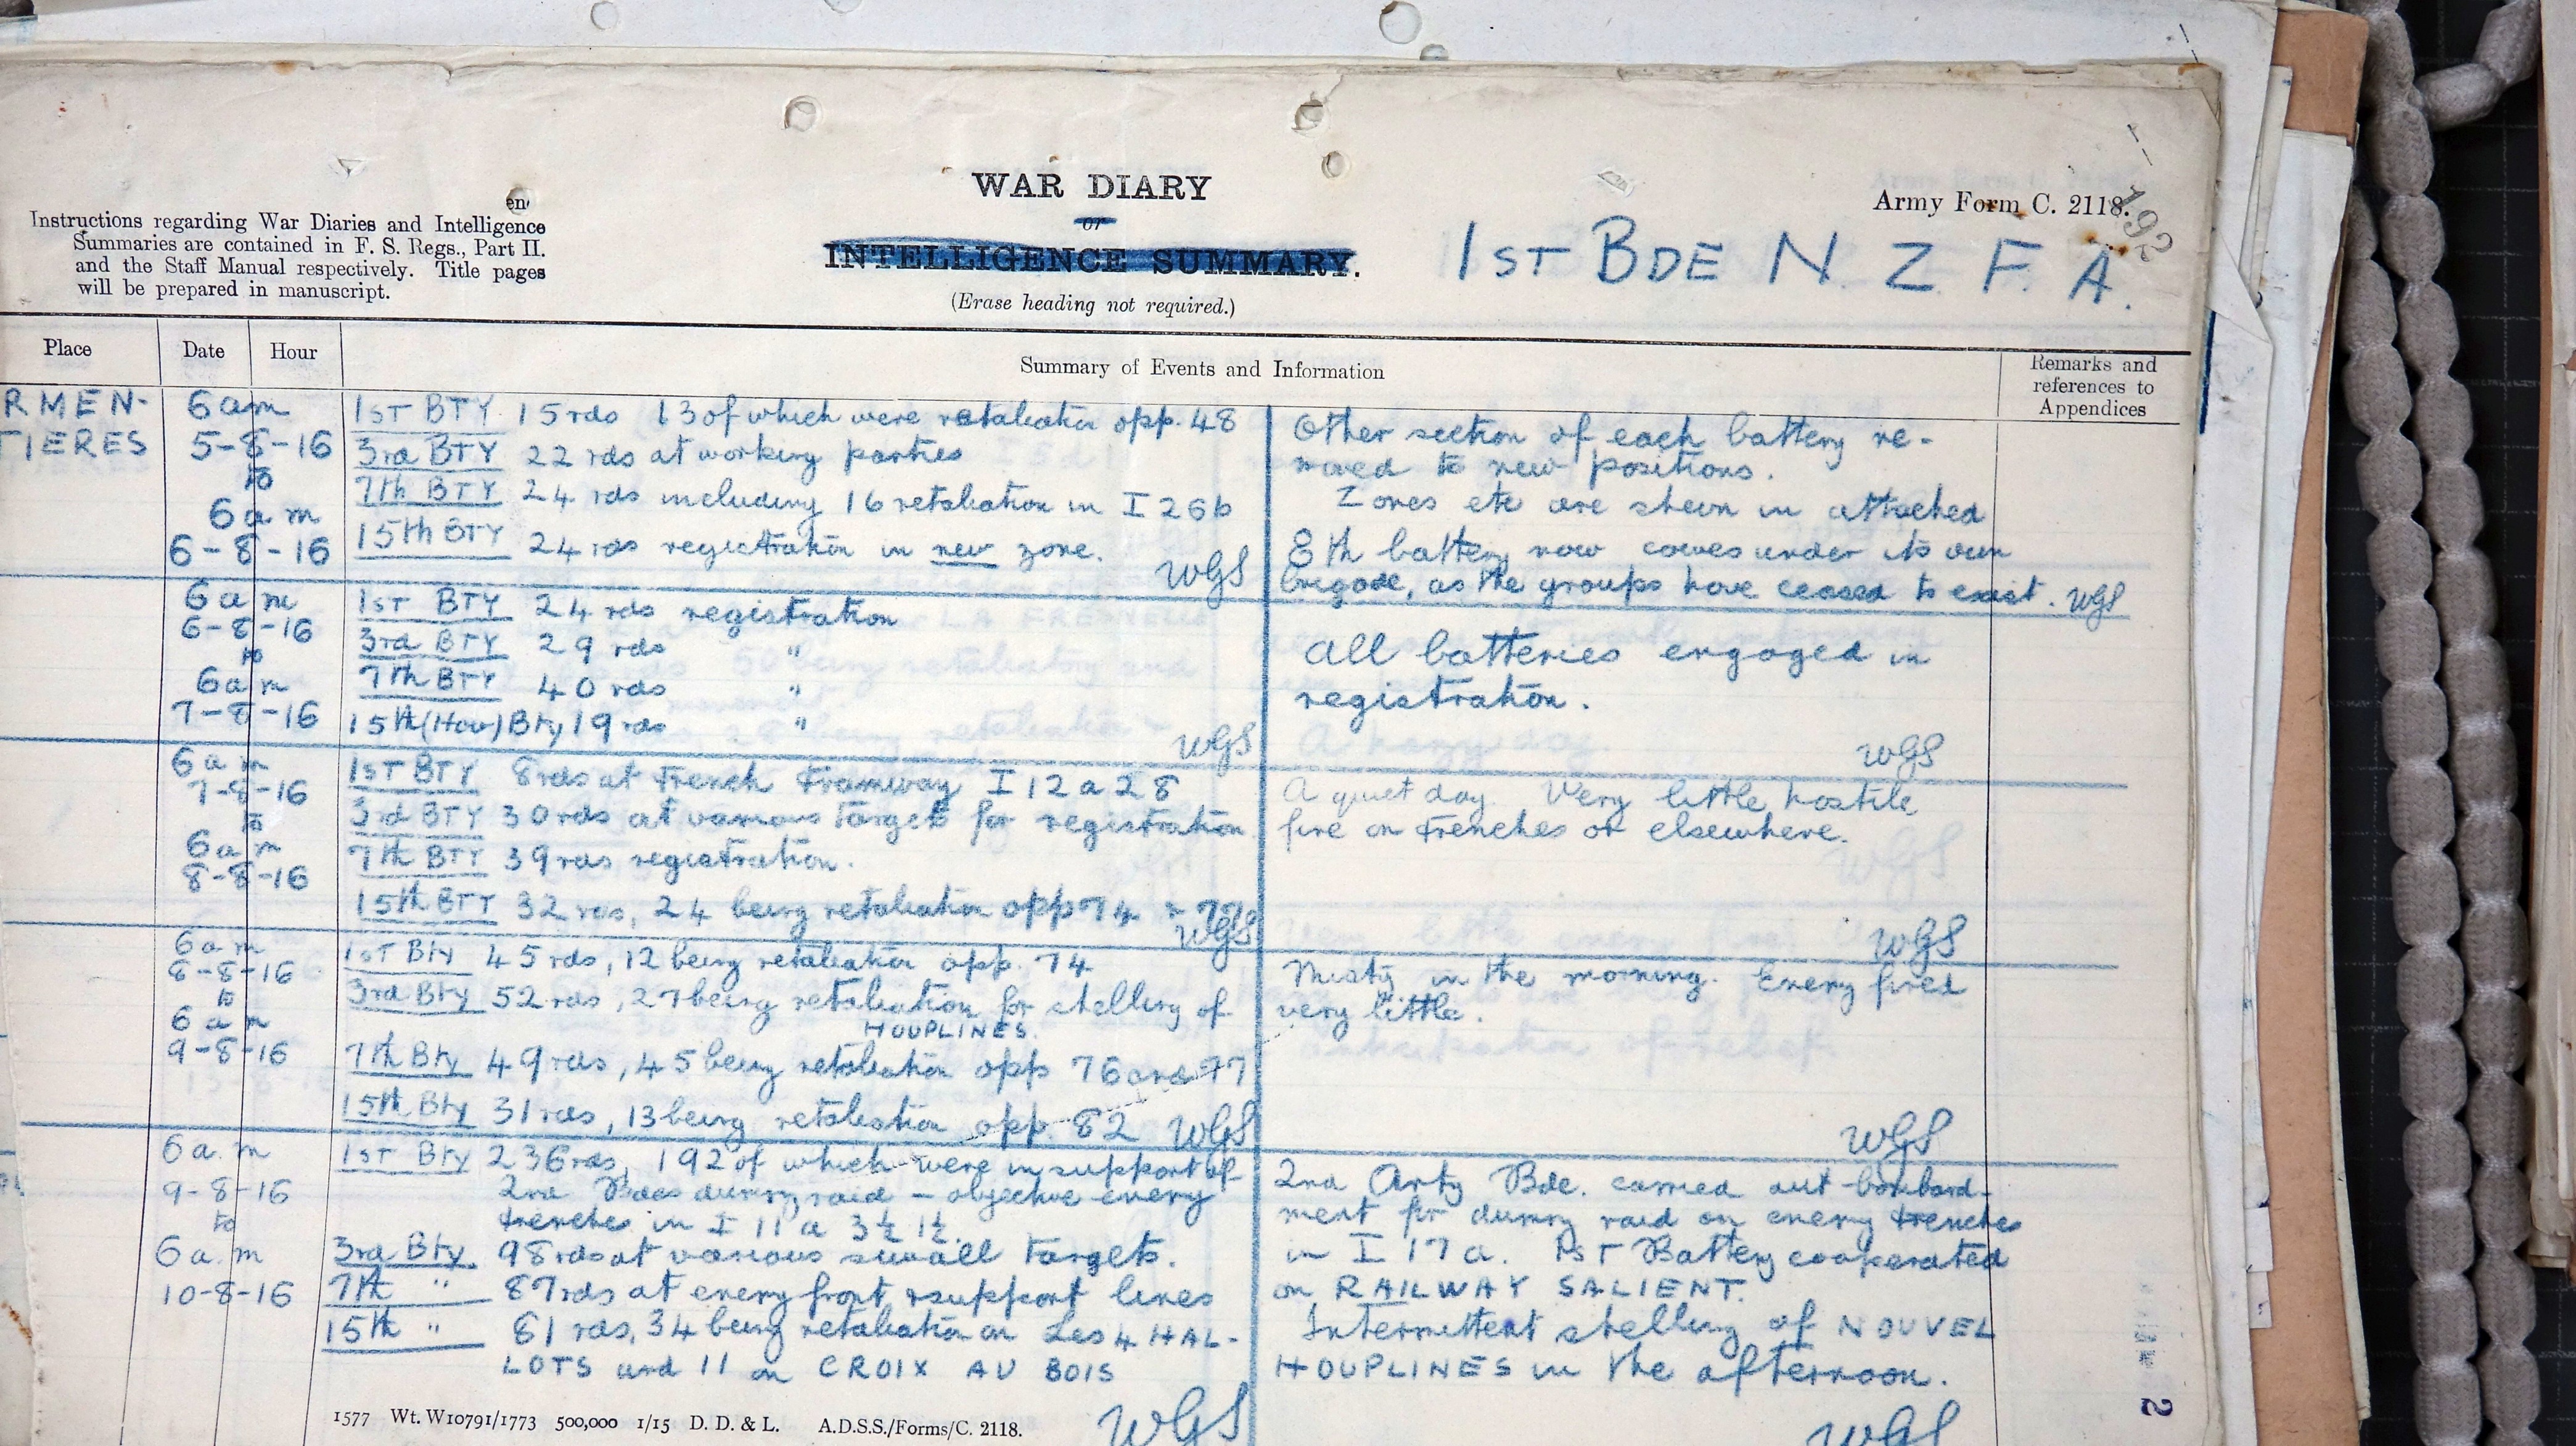 WAR DIARY
or
INTELLIGENCE SUMMARY.
(Erase heading not required.)
Army Form C. 2118.
192
1ST BDE N. Z. F. A.
Instructions regarding War Diaries and Intelligence
Summaries are contained in F. S. Regs., Part II.
and the Staff Manual respectively. Title pages
will be prepared in manuscript.
Place
Date
Hour
Summary of Events and Information
Remarks and
references to
Appendices
RMEN-
TIERES
6 am
5-8-16
to
6 a m
6-8-16
1ST BTY 15 rds 13 of which were retaliation opp. 48
3rd BTY 22 rds at working parties
7th BTY 24 rds including 16 retaliation in I 26b
15th BTY 24 rds registration in new zone.
WGS
Other section of each battery re-
moved to new positions.
Zones etc are shewn in attached
8th battery now comes under its own
brigade, as the groups have ceased to exist. WGS
6 a m
6-8-16
to
6 a m
7-8-16
1ST BTY 24 rds registration
3rd BTY 29 rds "
7th BTY 40 rds "
15th (How) Bty 19 rds "
WGS
All batteries engaged in
registration.
WGS
6 a m
7-8-16
to
6 a m
8-8-16
1ST BTY 8 rds at trench tramway I 12 a 28
3rd BTY 30 rds at various targets for registration
7th BTY 39 rds registration.
15th BTY 32 rds, 24 being retaliation opp 74 & 77
WGS
A quiet day. Very little hostile
fire on trenches or elsewhere.
WGS
6 a m
8-8-16
to
6 a m
9-8-16
1ST Bty 45 rds, 12 being retaliation opp. 74
3rd Bty 52 rds, 27 being retaliation for shelling of
HOUPLINES.
7th Bty 49 rds, 45 being retaliation opp 76 and 77
15th Bty 31 rds, 13 being retaliation opp. 82 WGS
Misty in the morning. Enemy fired
very little.
WGS
6 a. m
9-8-16
to
6 a. m
10-8-16
1ST Bty 236 rds, 192 of which were in support of
2nd Bdes dummy raid - objective enemy
trenches in I 11 a 3½ 1½.
3rd Bty. 98 rds at various small targets.
7th " 87 rds at enemy front & support lines
15th " 81 rds, 34 being retaliation on Les 4 HAL-
LOTS and 11 on CROIX AU BOIS
WGS
2nd Arty Bde. carried out bombard-
ment for dummy raid on enemy trenches
in I 17 a. 1ST Battery cooperated
on RAILWAY SALIENT.
Intermittent shelling of NOUVEL
HOUPLINES in the afternoon.
WGS
1577 Wt. W10791/1773 500,000 1/15 D. D. & L. A.D.S.S./Forms/C. 2118.
2